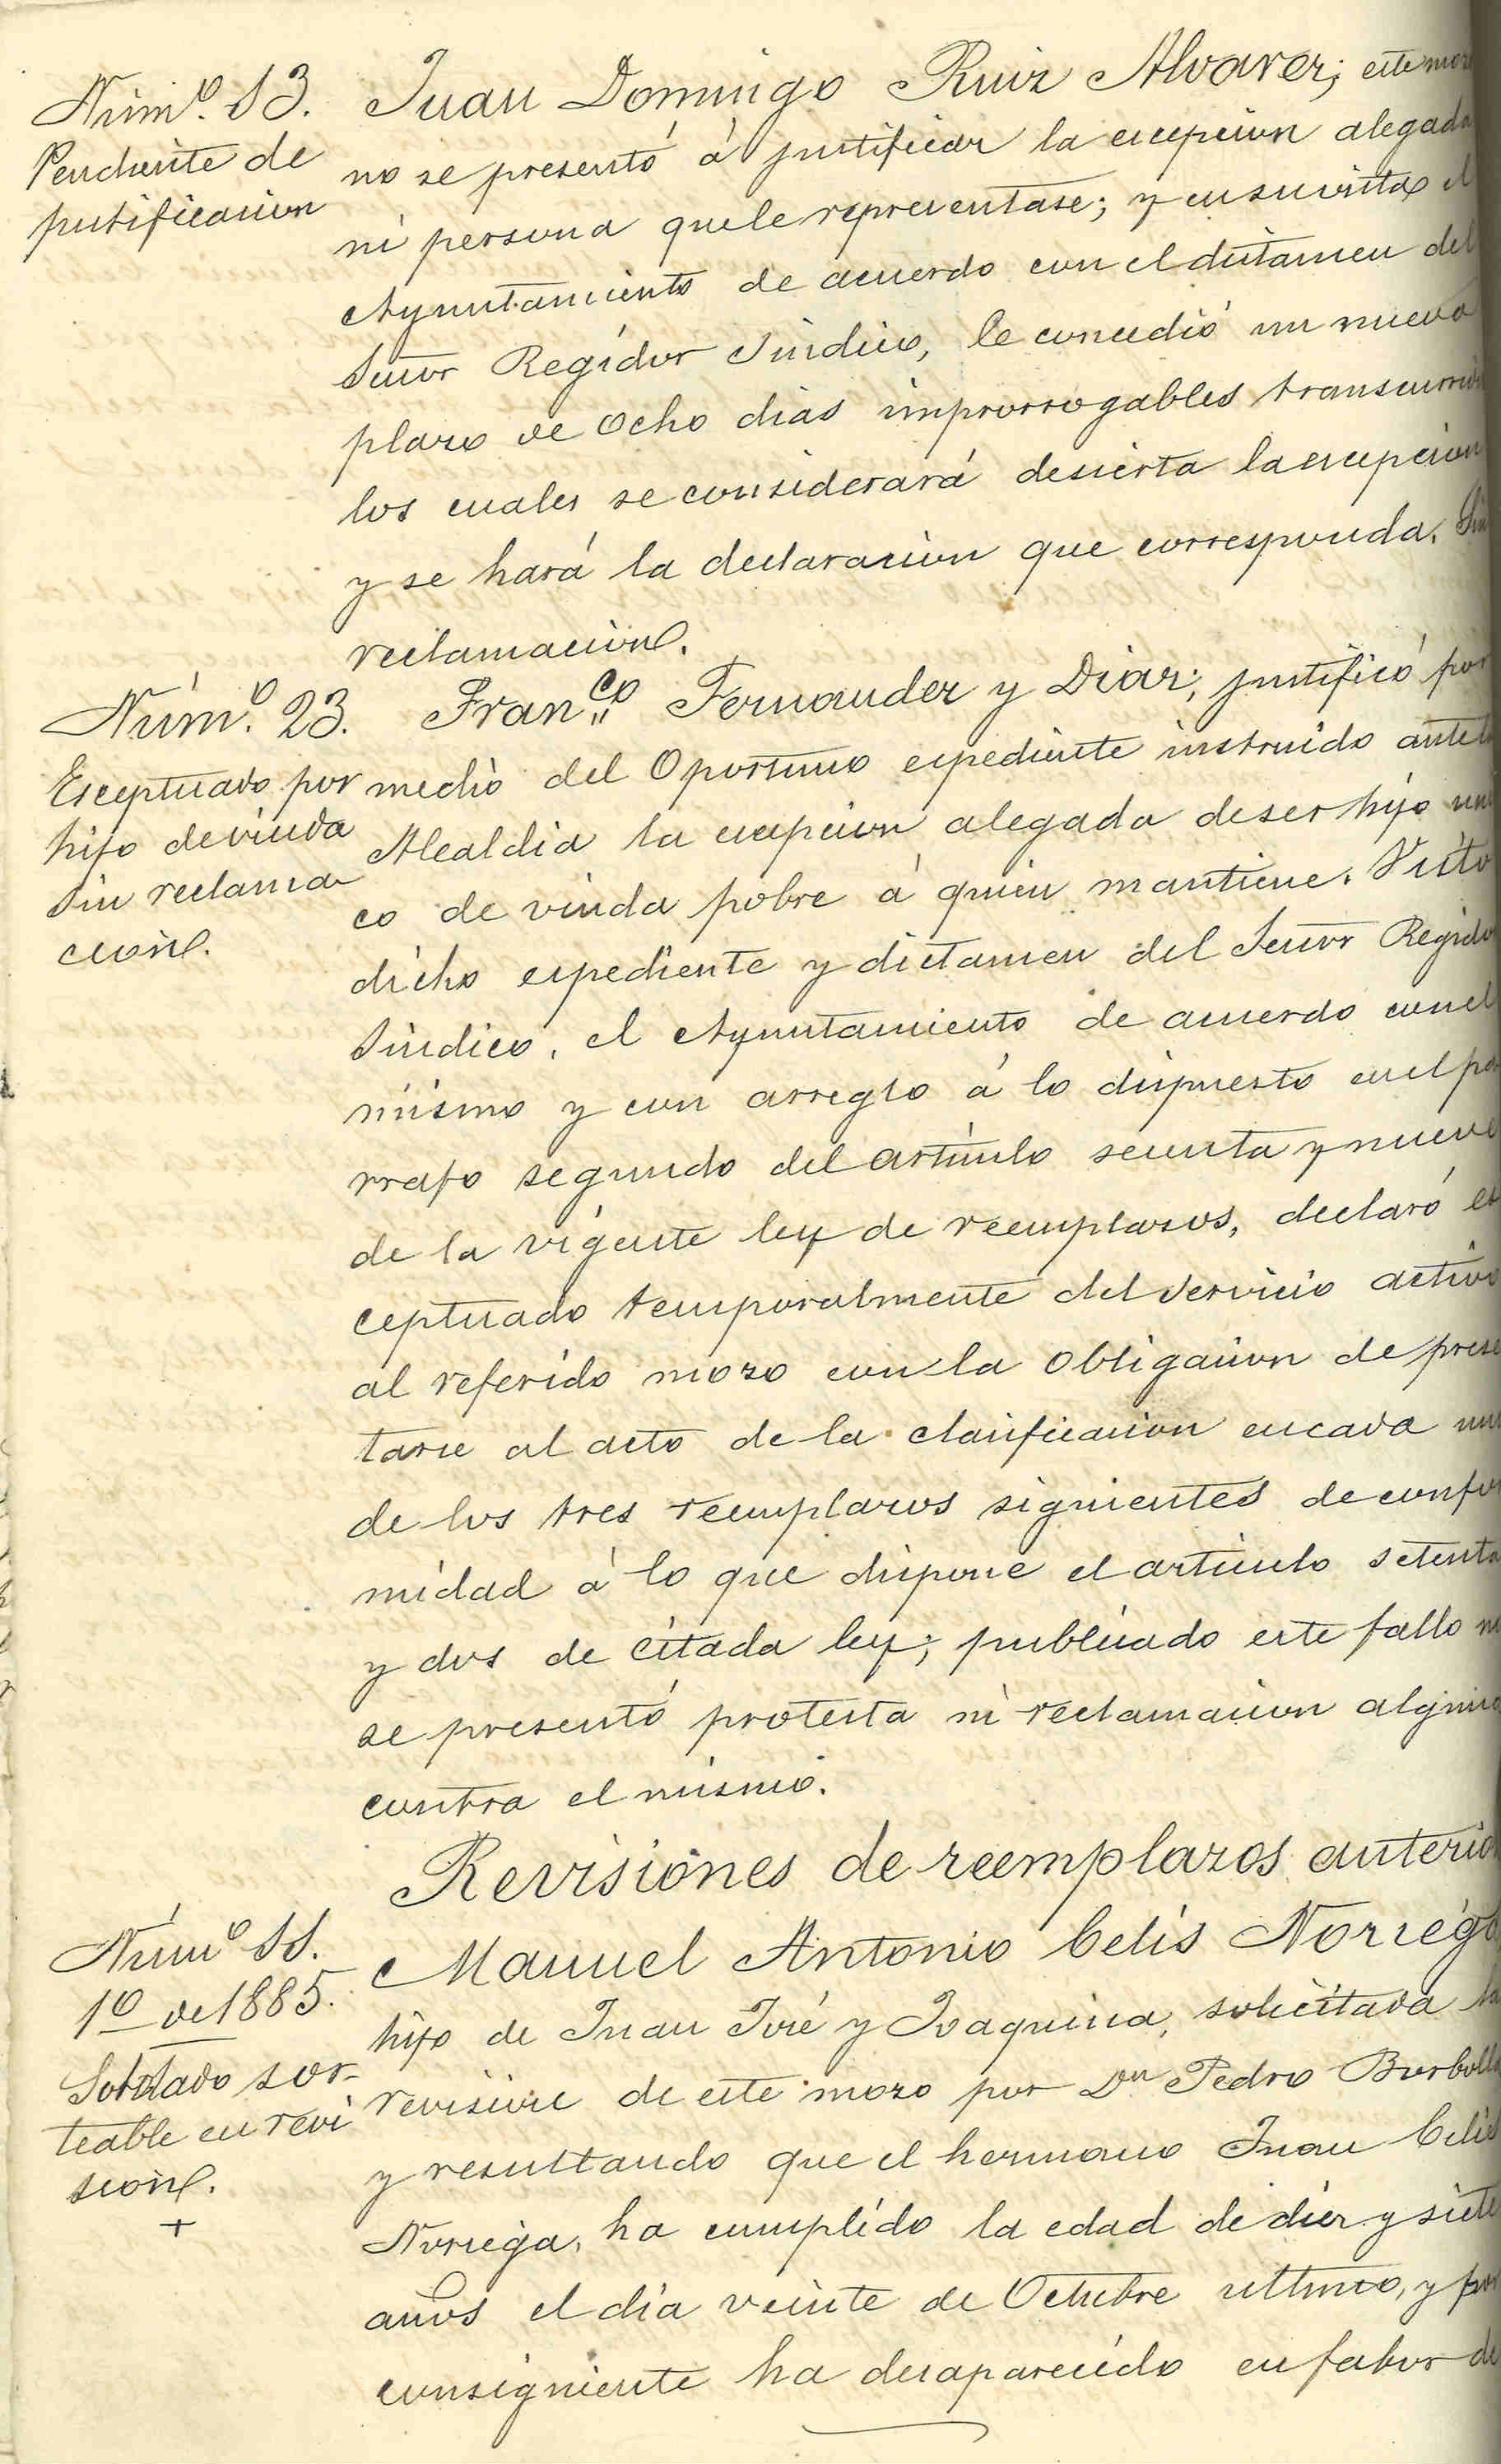 Núm.º 13.
Pendiente de
justificacion
Juan Domingo Ruiz Alvarez; este mozo
no se presentó á justificar la escepcion alegada
ni persona que le representase; y en su vista el
Ayuntamiento de acuerdo con el dictamen del
Señor Regidor Sindico, le concedió un nuevo
plazo de ocho dias improrrogables transcurri
los cuales se considerará desierta la escepcion
y se hará la declaracion que corresponda. Sin
reclamacion.
Núm.º 23.
Esceptuado por
hijo de viuda
sin reclama
cion.
Fran.co Fernandez y Diaz; justificó por
medio del Oportuno espediente instruido ante la
Alcaldia la escepcion alegada de ser hijo uni
co de viuda pobre á quien mantiene. Visto
dicho espediente y dictamen del Señor Regidor
Sindico, el Ayuntamiento de acuerdo con el
mismo y con arreglo á lo dispuesto en el pá
rrafo segundo del artículo sesenta y nueve
de la vigente ley de reemplazos, declaró es
ceptuado temporalmente del servicio activo
al referido mozo con la obligacion de prese
tarse al acto de la clasificacion en cada uno
de los tres reemplazos siguientes de confor
midad á lo que dispone el artículo setenta
y dos de citada ley; publicado este fallo no
se presentó protesta ni reclamacion alguna
contra el mismo.
Revisiones de reemplazos anterio
Núm.º 11.
1º de 1885.
Soldado sor-
teable en revi
sion.
+
Manuel Antonio Celis Norrega
hijo de Juan José y Joaquina, solicitada la
revision de este mozo por Dn Pedro Borbolla
y resultando que el hermano Juan Celis
Noriega, ha cumplido la edad de diez y siete
años el dia veinte de Octubre ultimo, y por
consiguiente ha desaparecido en fabor de